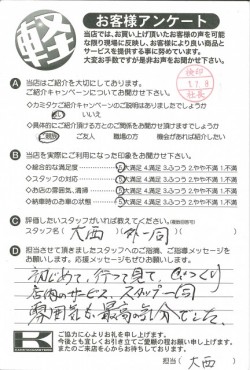 軽
お客様アンケート
当店では、お買い上げ頂いたお客様の声を可能
な限り現場に反映し、お客様により良い商品と
サービスを提供する事に努めています。
大変お手数ですが是非お声をお聞かせ下さい。
検印
社長
A 当店はご紹介を大切にしております。
ご紹介キャンペーンについてお聞かせ下さい。
◇カミタケご紹介キャンペーンのご説明はありましたでしょうか
はい いいえ
◇具体的にご紹介頂ける方とのご関係をお聞かせ頂けますでしょうか
ご親族 ご友人 職場の方 機会があれば紹介したい
B 当店を実際にご利用になった印象をお聞かせ下さい。
◇総合的な満足度 5.大満足 4.満足 3.ふつう 2.やや不満 1.不満
◇スタッフの対応 5.大満足 4.満足 3.ふつう 2.やや不満 1.不満
◇お店の雰囲気、清掃 5.大満足 4.満足 3.ふつう 2.やや不満 1.不満
◇納車時のお車の状態 5.大満足 4.満足 3.ふつう 2.やや不満 1.不満
C 評価したいスタッフがいれば教えてください。(複数回答可)
スタッフ名( 大西 (外一同) )
D 担当させて頂きましたスタッフへのご感想、ご指導メッセージを
お願いします。応援メッセージもぜひお聞かせ下さい。
初じめて、行って見て、びっくり
店内のサービス、スタッフ一同
雰囲気も、最高の気分でした。
ご協力に心よりお礼を申し上げます。
今後とも宜しくお引き立てご愛顧の程お願い申し上げます。
またのご来店を心からお待ちしております。
担当( 大西 )